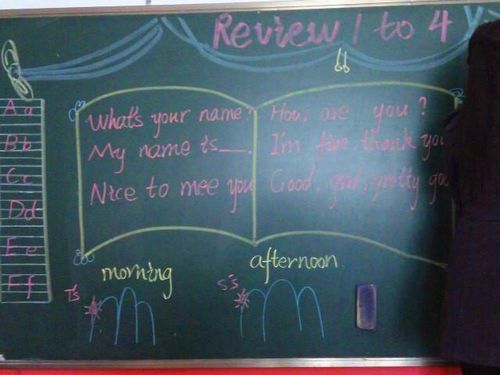 Review 1 to 4
Aa
Bb
Cc
Dd
Ee
Ff
What's your name?
My name is___.
Nice to mee you
How are you?
I'm fine, thank you
Good, good, pretty goo
morning
afternoon
T's
S's